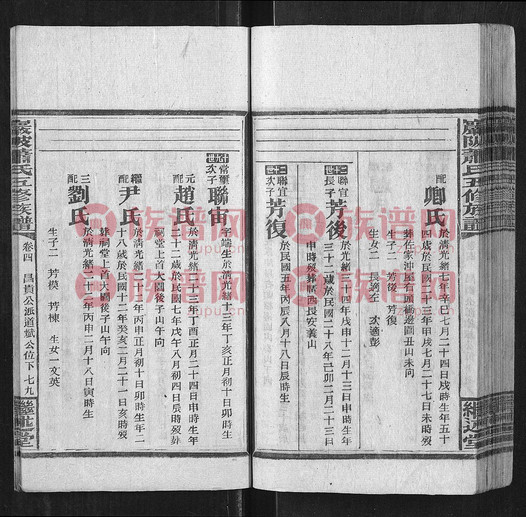 巖陂蕭氏五修族譜
繼述堂
配 卿氏
於清光緒七年辛巳七月二十四日戌時生年五十
四歲於民國二十三年甲戌七月二十七日未時歿
葬佐家沖屋右頭楊邊園丑山未向
生子二 芳後 芳復
生女二 長適左 次適彭
二十世
聯宜長子 芳後
於光緒三十四年戊申十二月十三日申時生年
三十二歲於民國二十八年己卯二月二十三日
申時歿葬於四長安義山
二十世
聯宜次子 芳復
於民國五年丙辰八月十八日辰時生
十九世
常筆次子 聯宙
字端生於清光緒十三年丁亥正月初十日卯時生
元配 趙氏
於清光緒二十三年丁酉正月二十四日申時生年
二十二歲於民國七年戊午八月初四日辰時歿葬
祠堂上首大園後子山午向
繼配 尹氏
於清光緒三十二年丙申正月初十日卯時生年二
十八歲於民國十二年癸亥二月二十一日亥時歿
葬祠堂上首大園後子山午向
三配 劉氏
於清光緒二十二年丙申二月十八日寅時生
生子二 芳模 芳棟 生女一 文英
巖陂蕭氏五修族譜
卷四 昌積公派道斌公位下 七九
繼述堂
族谱网